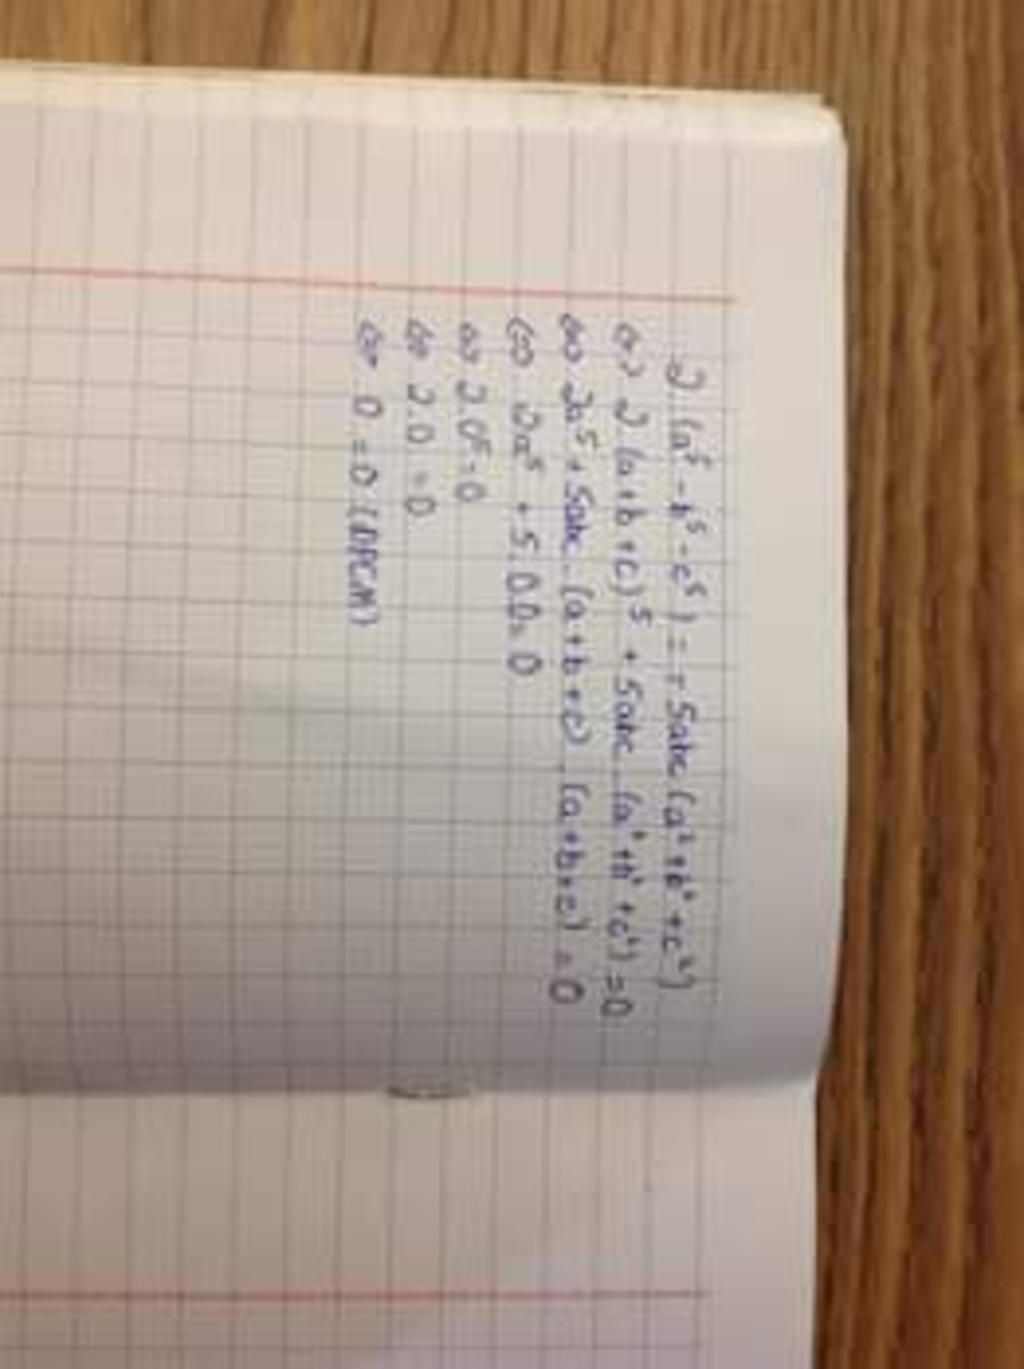 2.(a⁵ - b⁵ - c⁵) = - 5abc (a² + b² + c²)
<=> 2 (a+b+c)⁵ + 5abc.(a²+b²+c²) = 0
<=> 2a⁵ + 5abc.(a+b+c).(a+b+c) = 0
<=> 2a⁵ + 5.0.0 = 0
<=> 2.0⁵ = 0
<=> 2.0 = 0
<=> 0 = 0 (ĐPCM)